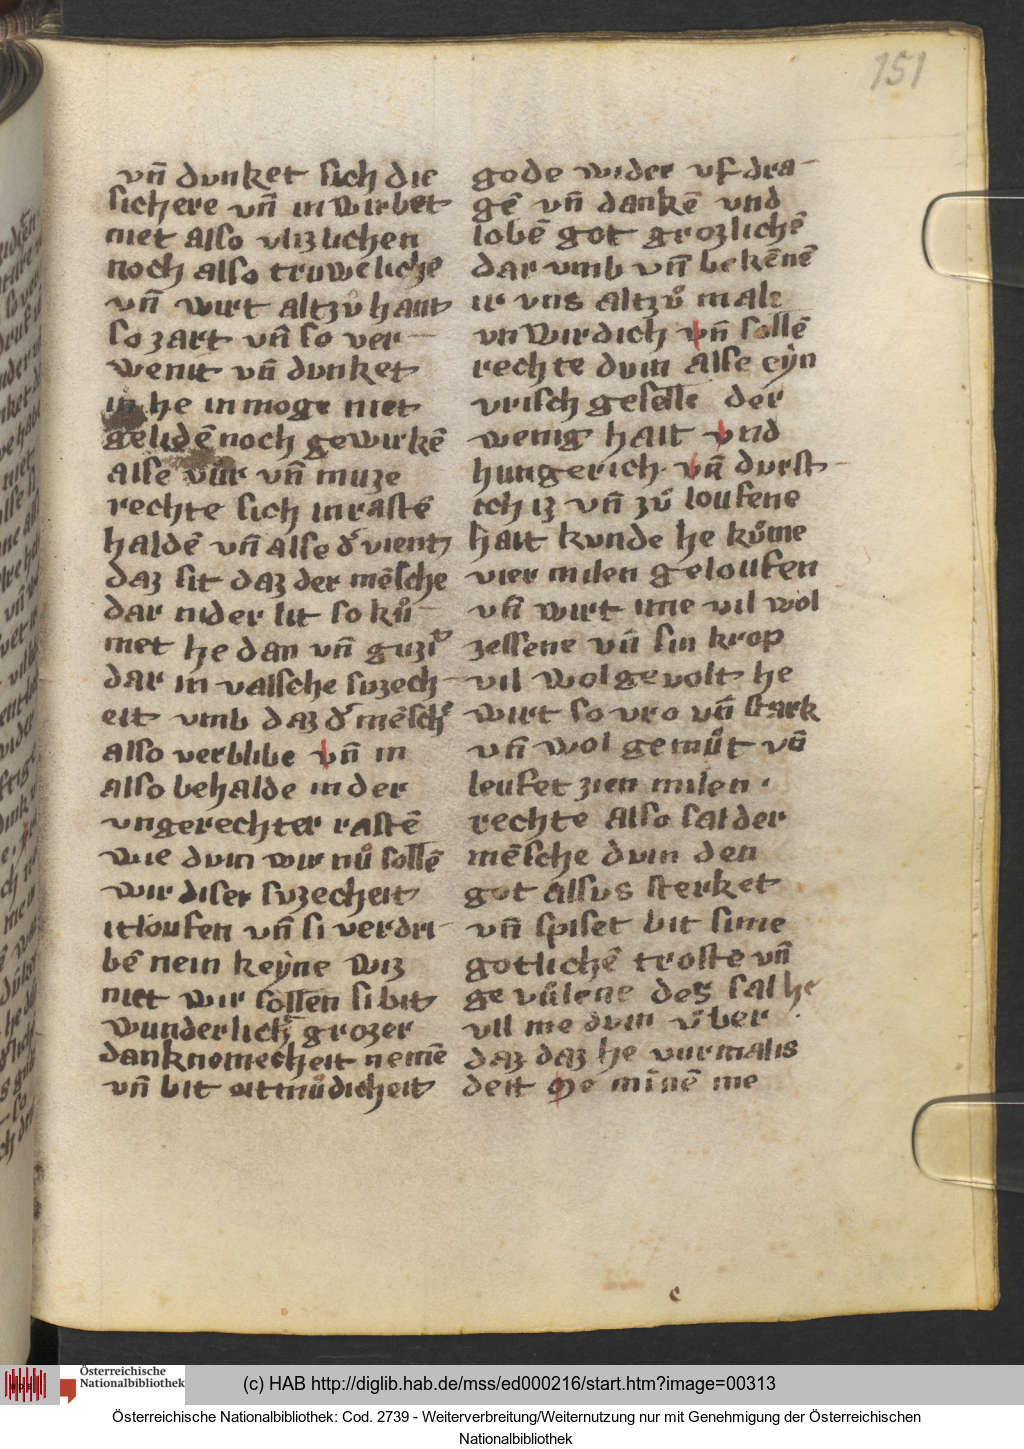 151
vn̄ dunket sich die
sichere vn̄ in wirbet
niet also vlizlichen
noch also truweliche
vn̄ wirt altzů hant
so zart vn̄ so ver-
wenit vn̄ dunket
in he in moge niet
gelidē noch gewirkē
alse vůr vn̄ muze
rechte sich in rastē
haldē vn̄ alse d' vient
daz sit daz der mēsche
dar nider lit so ků-
met he dan vn̄ guzit
dar in valsche suzech-
eit vmb daz d' mēsche
also verblibe vn̄ in
also behalde in der
vngerechter rastē
wie duin wir nů sollē
wir diser suzecheit
itloufen vn̄ si verdri-
bē nein keẏne wiz
niet wir sollen si bit
wunderlich' grozer
danknomecheit nemē
vn̄ bit oitmůdicheit
gode wider uf dra-
gē vn̄ dankē vnd
lobē got grozlichē
dar vmb vn̄ bekēnē
ir vns altzů male
vnwirdich vn̄ sollē
rechte duin alse eẏn
vrisch geselle der
wenig hait vnd
hungerich vn̄ durst-
ich iz vn̄ zů loufene
hait kunde he kůme
vier milen geloufen
vn̄ wirt ime vil wol
zessene vn̄ sin krop
vil wol gevolt he
wirt so vro vn̄ stark
vn̄ wol gemůt vn̄
leufet zien milen ·
rechte also sal der
mēsche duin den
got alsus sterket
vn̄ spiset bit sime
gotlichē troste vn̄
gevůlene des sal he
vil me duin v̊ber
daz daz he vurmalis
deit he minē me
c
Österreichische
Nationalbibliothek
(c) HAB http://diglib.hab.de/mss/ed000216/start.htm?image=00313
Österreichische Nationalbibliothek: Cod. 2739 - Weiterverbreitung/Weiternutzung nur mit Genehmigung der Österreichischen
Nationalbibliothek